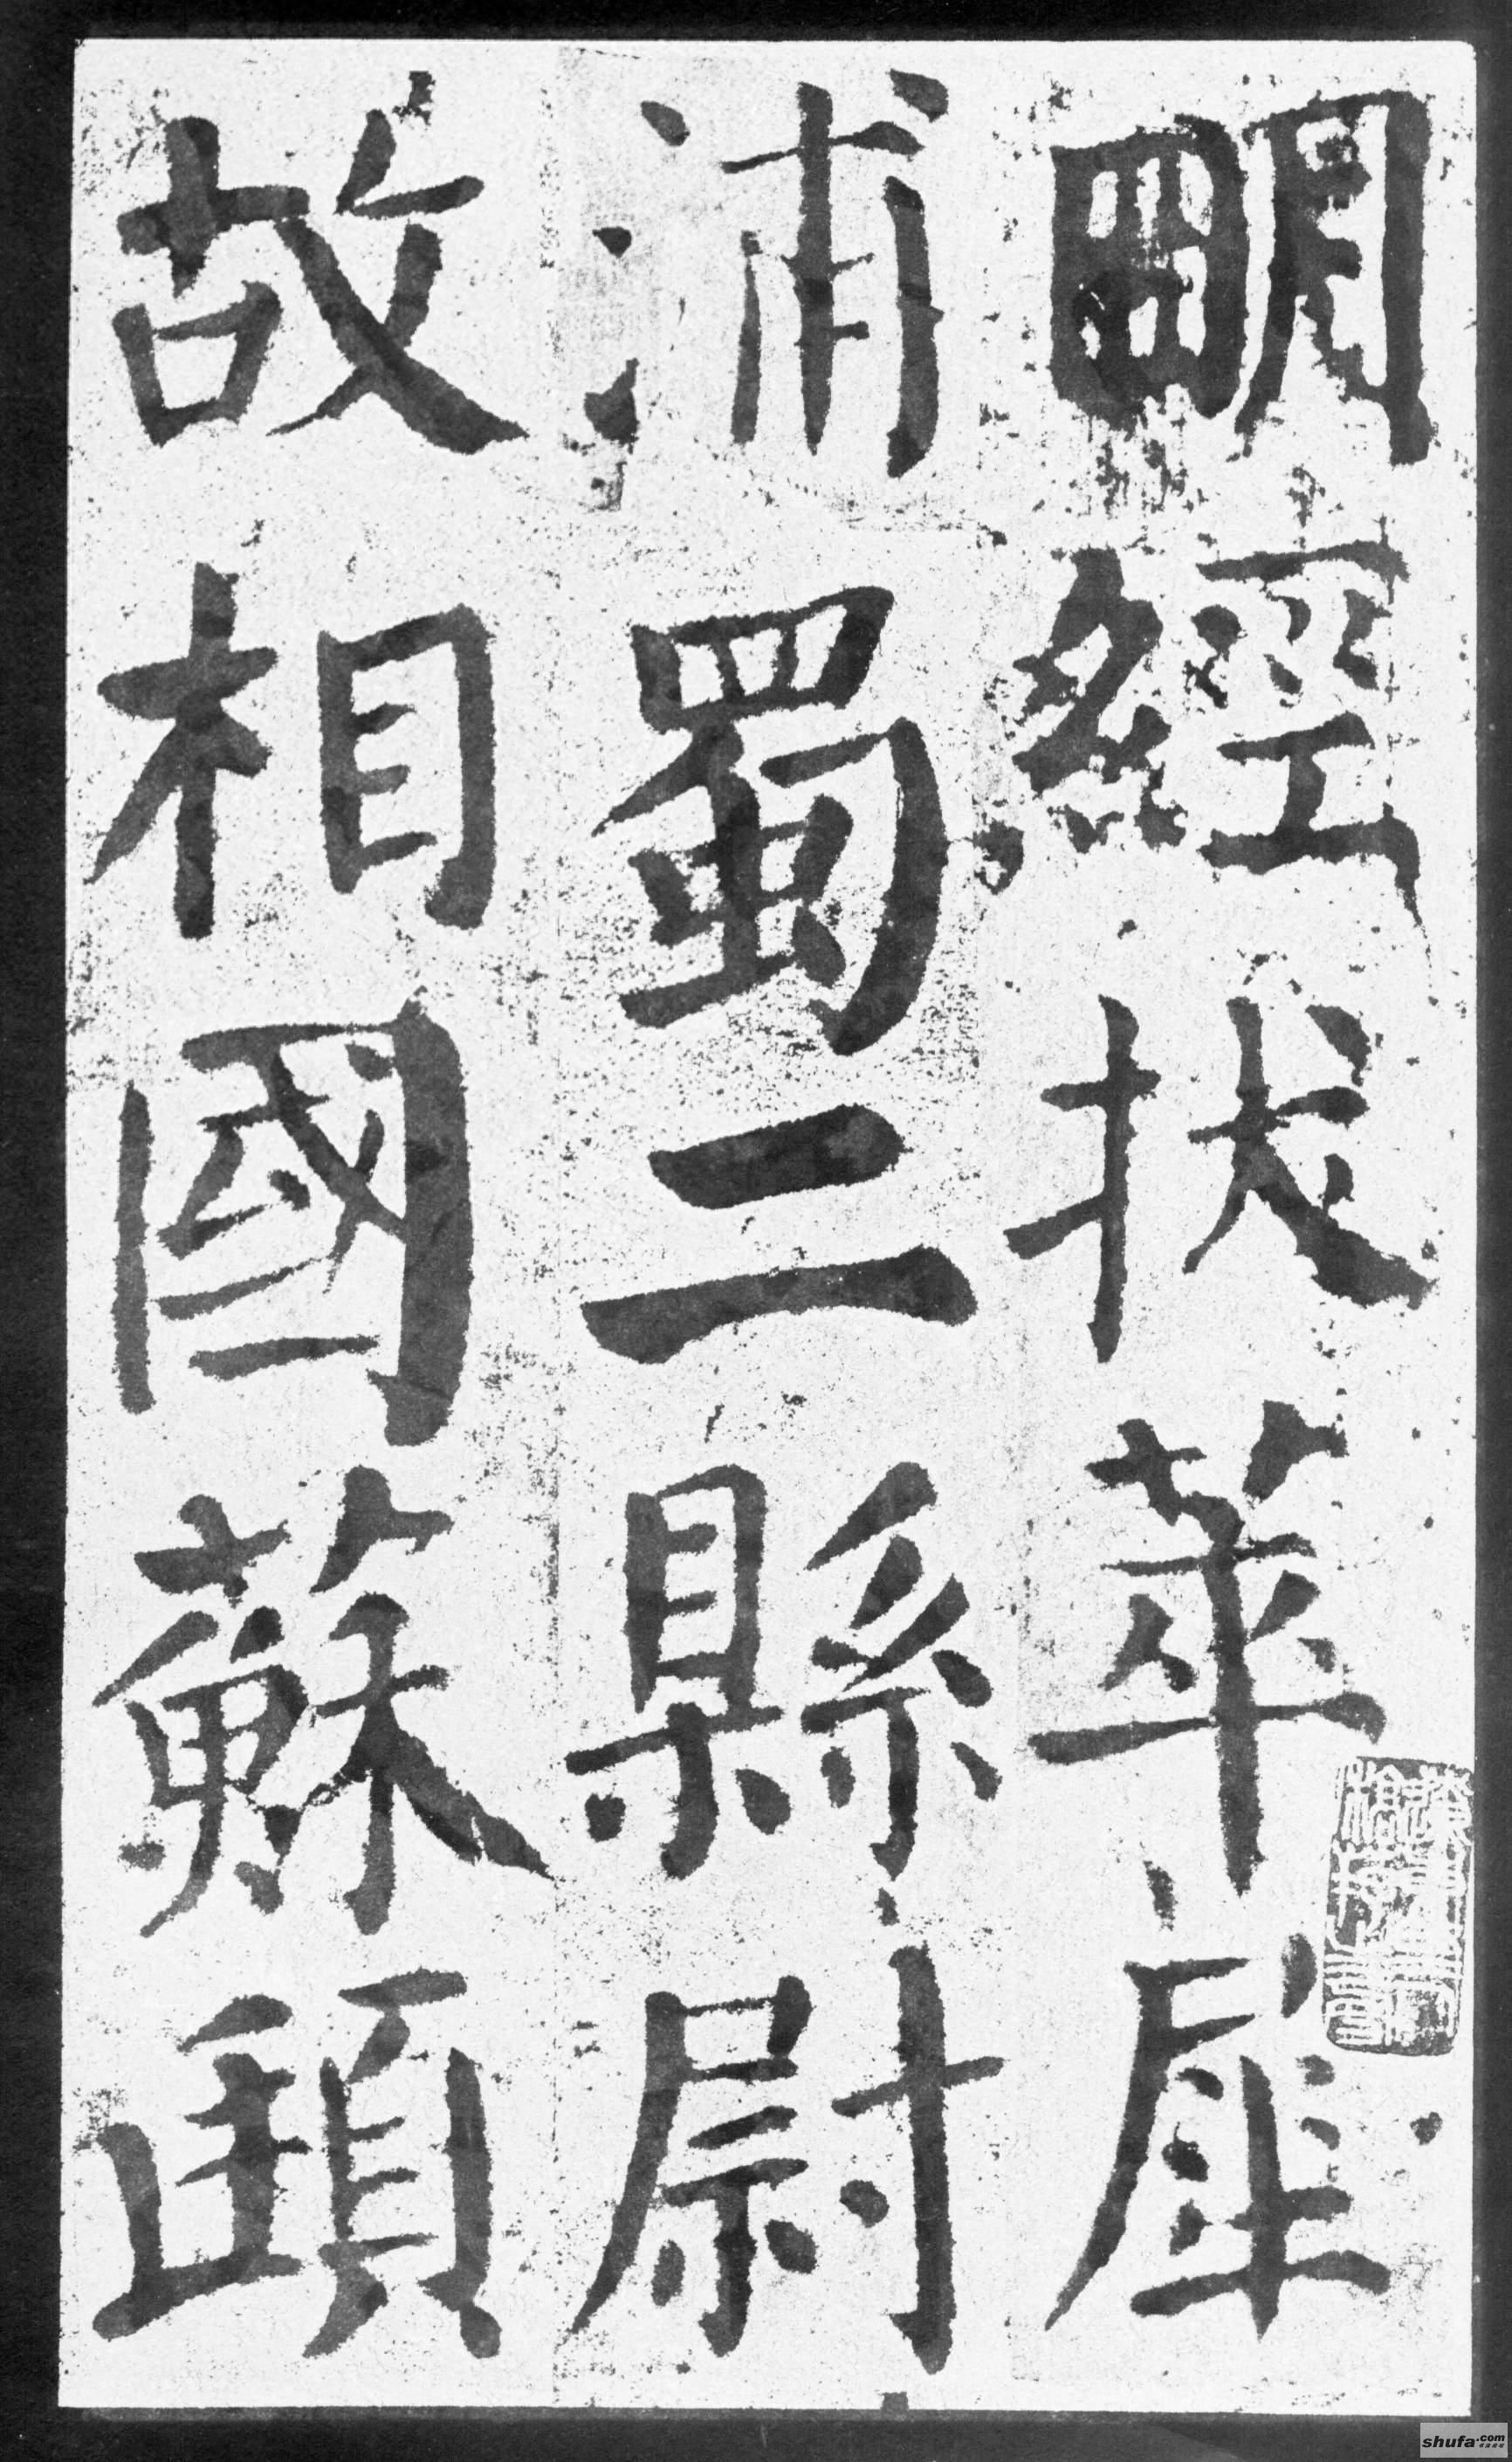 明經拔萃犀
浦蜀二縣尉
故相國蘇頲
shufa.com